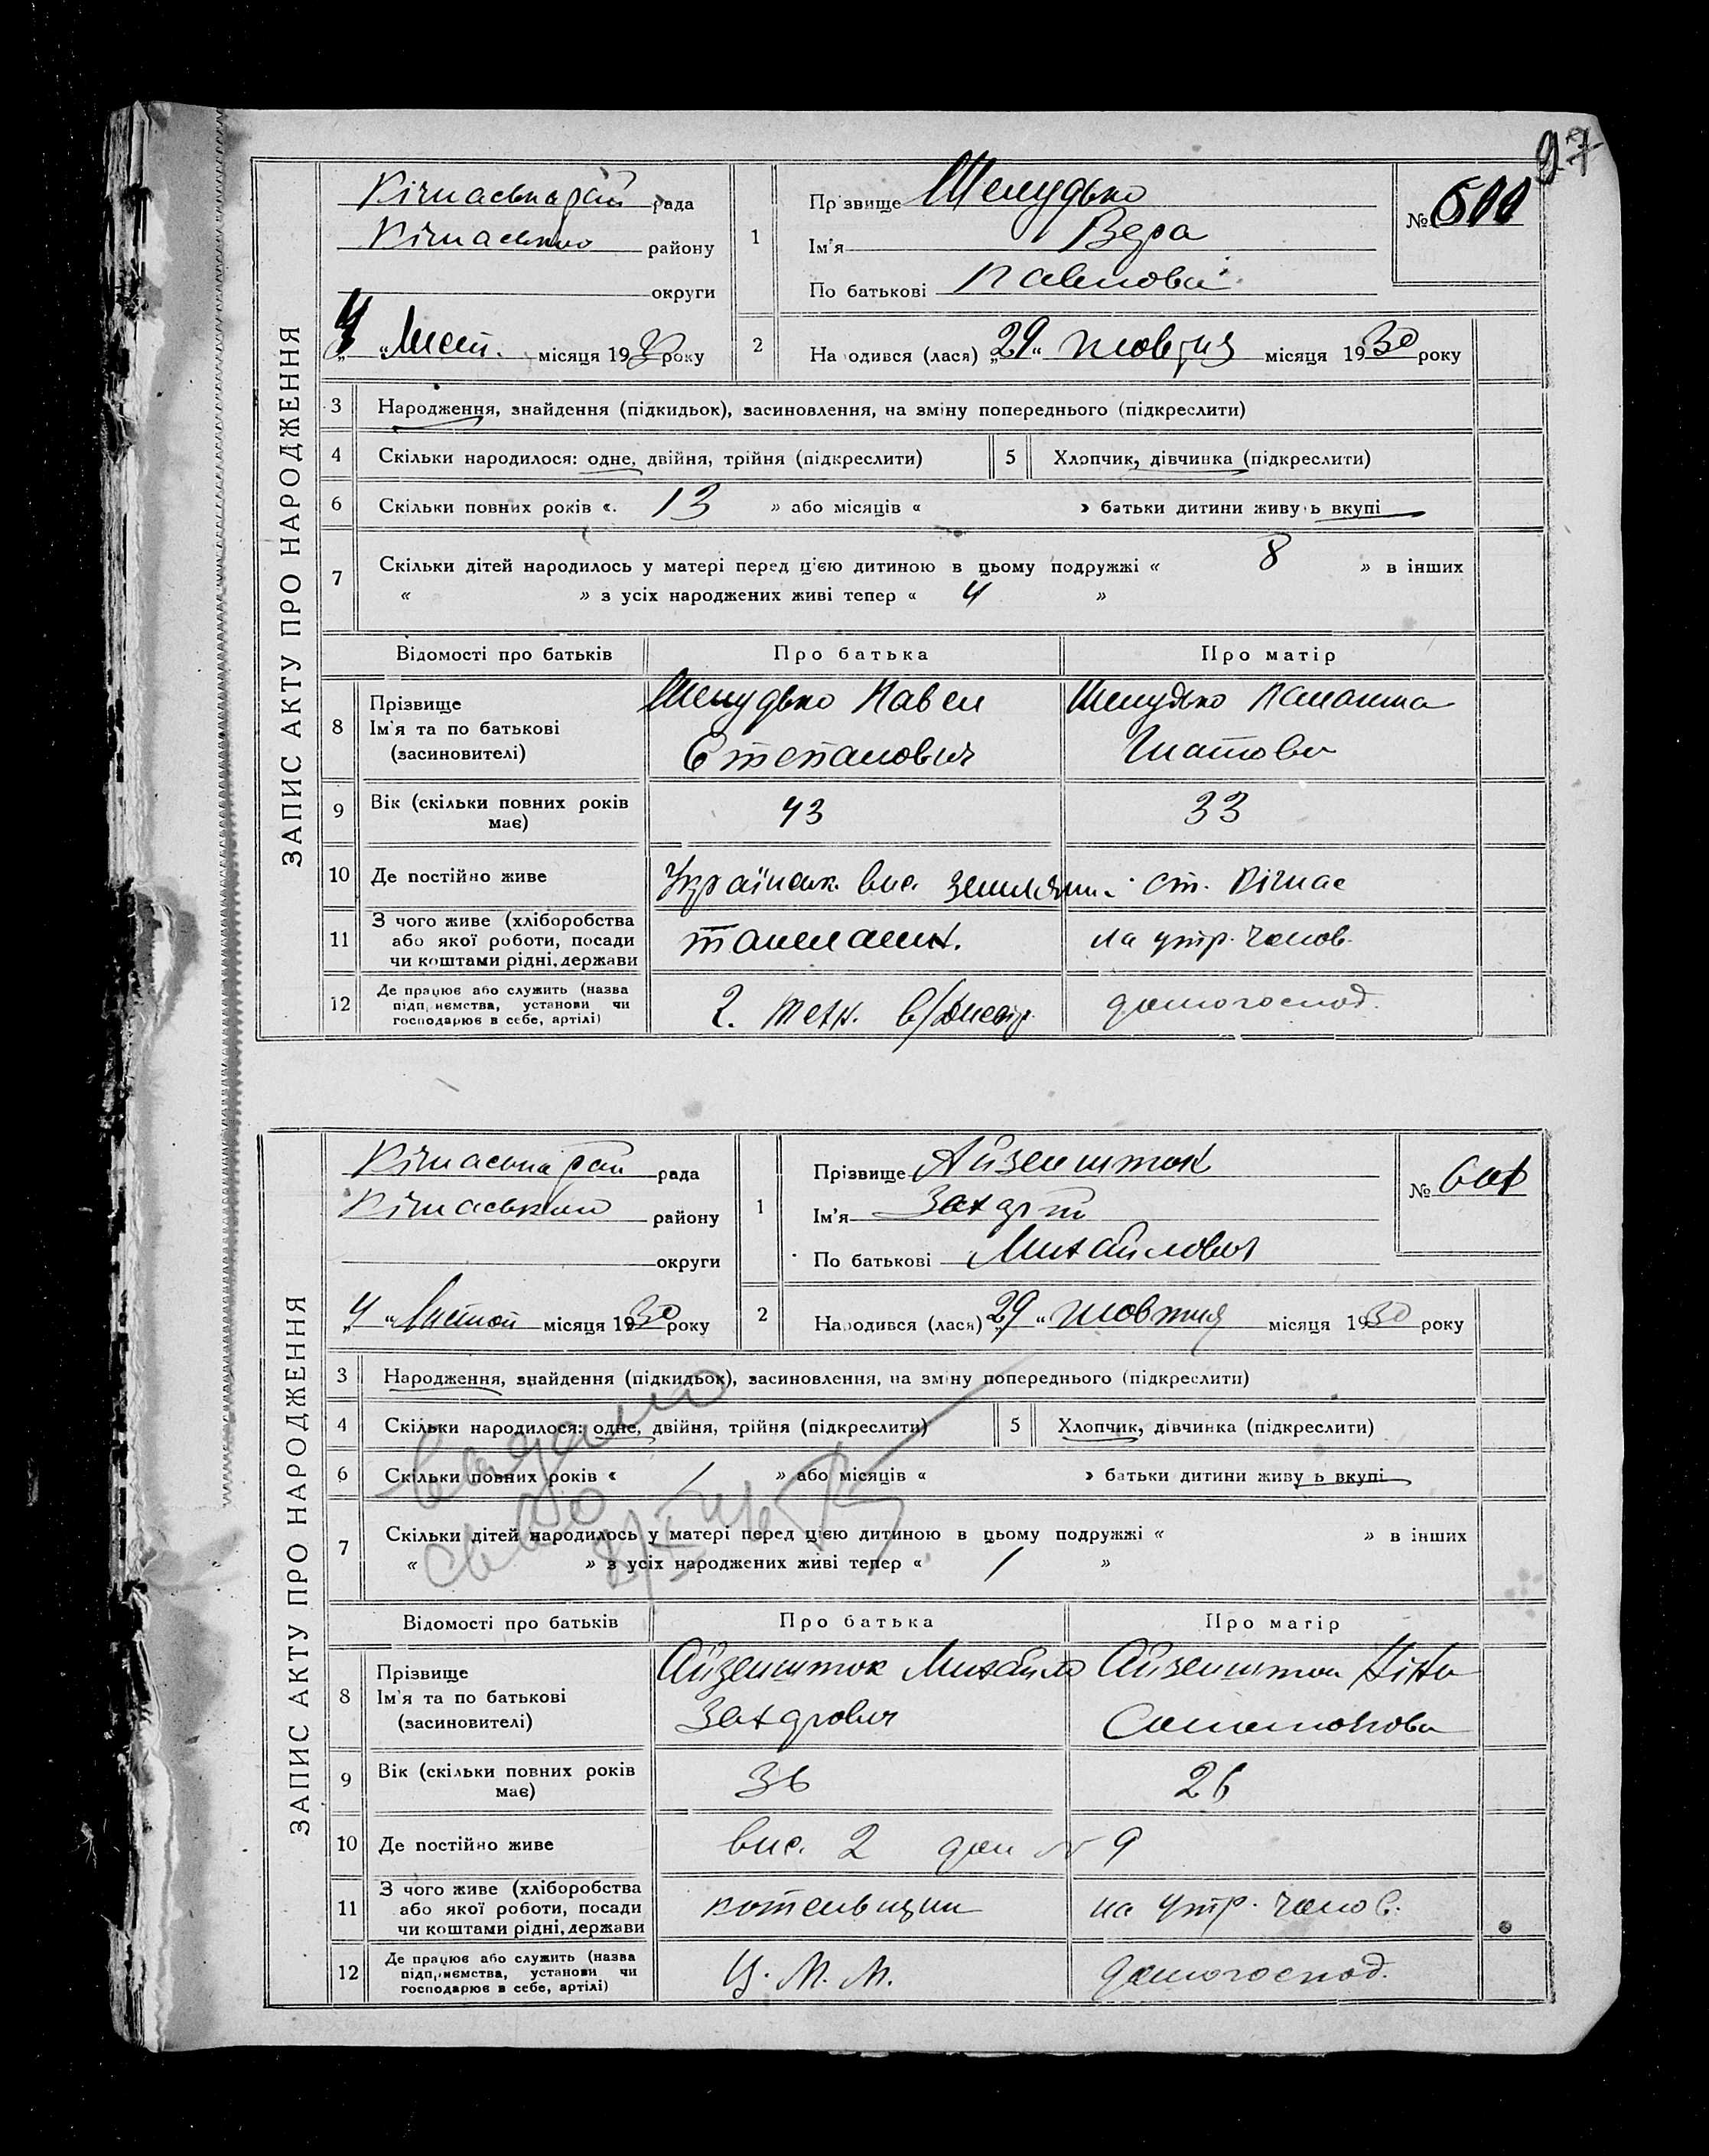 97
ЗАПИС АКТУ ПРО НАРОДЖЕННЯ
Кічкаська рай рада
Кічкасько району
округи
4 „Лист. місяця 1930 року
1
Пр звище Шелудько
Ім'я Вера
По батькові Павлова
№ 600
2
На одився (лася) „29“ жовтня місяця 1930 року
3 Народження, знайдення (підкидьок), засиновлення, на зміну попереднього (підкреслити)
4 Скільки народилося: одне, двійня, трійня (підкреслити)
5 Хлопчик, дівчинка (підкреслити)
6 Скільки повних років « 13 » або місяців « » батьки дитини живу ь вкупі
7 Скільки дітей народилось у матері перед ц'єю дитиною в цьому подружжі « 8 » в інших
« » з усіх народжених живі тепер « 4 »
Відомості про батьків Про батька Про матір
8 Прізвище
Ім'я та по батькові
(засновителі)
Шелудько Павел
Степанович
Шелудько
9 Вік (скільки повних років
має)
43 33
10 Де постійно живе Українськ. вис. землянк. ст. Кічкас
11 З чого живе (хліборобства
або якої роботи, посади
чи коштами рідні, держави
на утр. чолов.
12 Де працює або служить (назва
підприємства, установи чи
господарює в себе, артілі)
2. техн. домогоспод.
ЗАПИС АКТУ ПРО НАРОДЖЕННЯ
Кічкаська рай рада
Кічкаським району
округи
„4 “Листоп місяця 1930 року
1
Прізвище Айзеншток
Ім'я Захар
По батькові Михайлович
№ 601
2
Народився (лася) „29“ жовтня місяця 1930 року
3 Народження, знайдення (підкидьок), засиновлення, на зміну попереднього (підкреслити)
4 Скільки народилося: одне, двійня, трійня (підкреслити)
5 Хлопчик, дівчинка (підкреслити)
6 Скільки повних років « 1 » або місяців « » батьки дитини живу ь вкупі
7 Скільки дітей народилось у матері перед ц'єю дитиною в цьому подружжі « » в інших
« » з усіх народжених живі тепер « 1 »
Відомості про батьків Про батька Про матір
8 Прізвище
Ім'я та по батькові
(засиновителі)
Айзеншток Михайло
Захарович
Айзеншток Ніна
Соломонова
9 Вік (скільки повних років
має)
36 26
10 Де постійно живе вис. 2 дом № 9
11 З чого живе (хліборобства
або якої роботи, посади
чи коштами рідні, держави
котельщик
на утр. чолов.
12 Де працює або служить (назва
підприємства, установи чи
господарює в себе, артілі)
Ц. М. М. домогоспод.